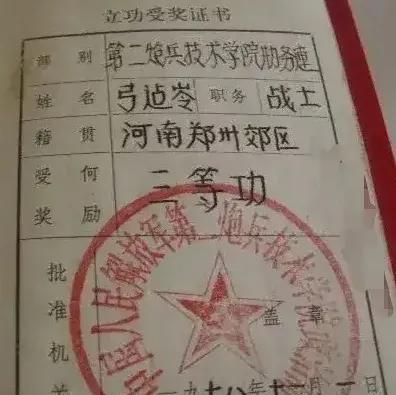 立功受奖证书
部别 第二炮兵技术学院 务連
姓名 弓 岺 职务 战士
籍贯 河南郑州郊区
受何奖励 三等功
批准机关
中国人民解放军第二炮兵技术学院
盖章
一九七八年十二月一日